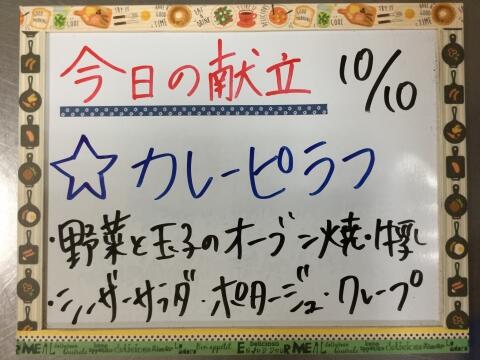 今日の献立 10/10
☆カレーピラフ
・野菜と玉子のオーブン焼・牛乳
・シーザーサラダ・ポタージュ・クレープ